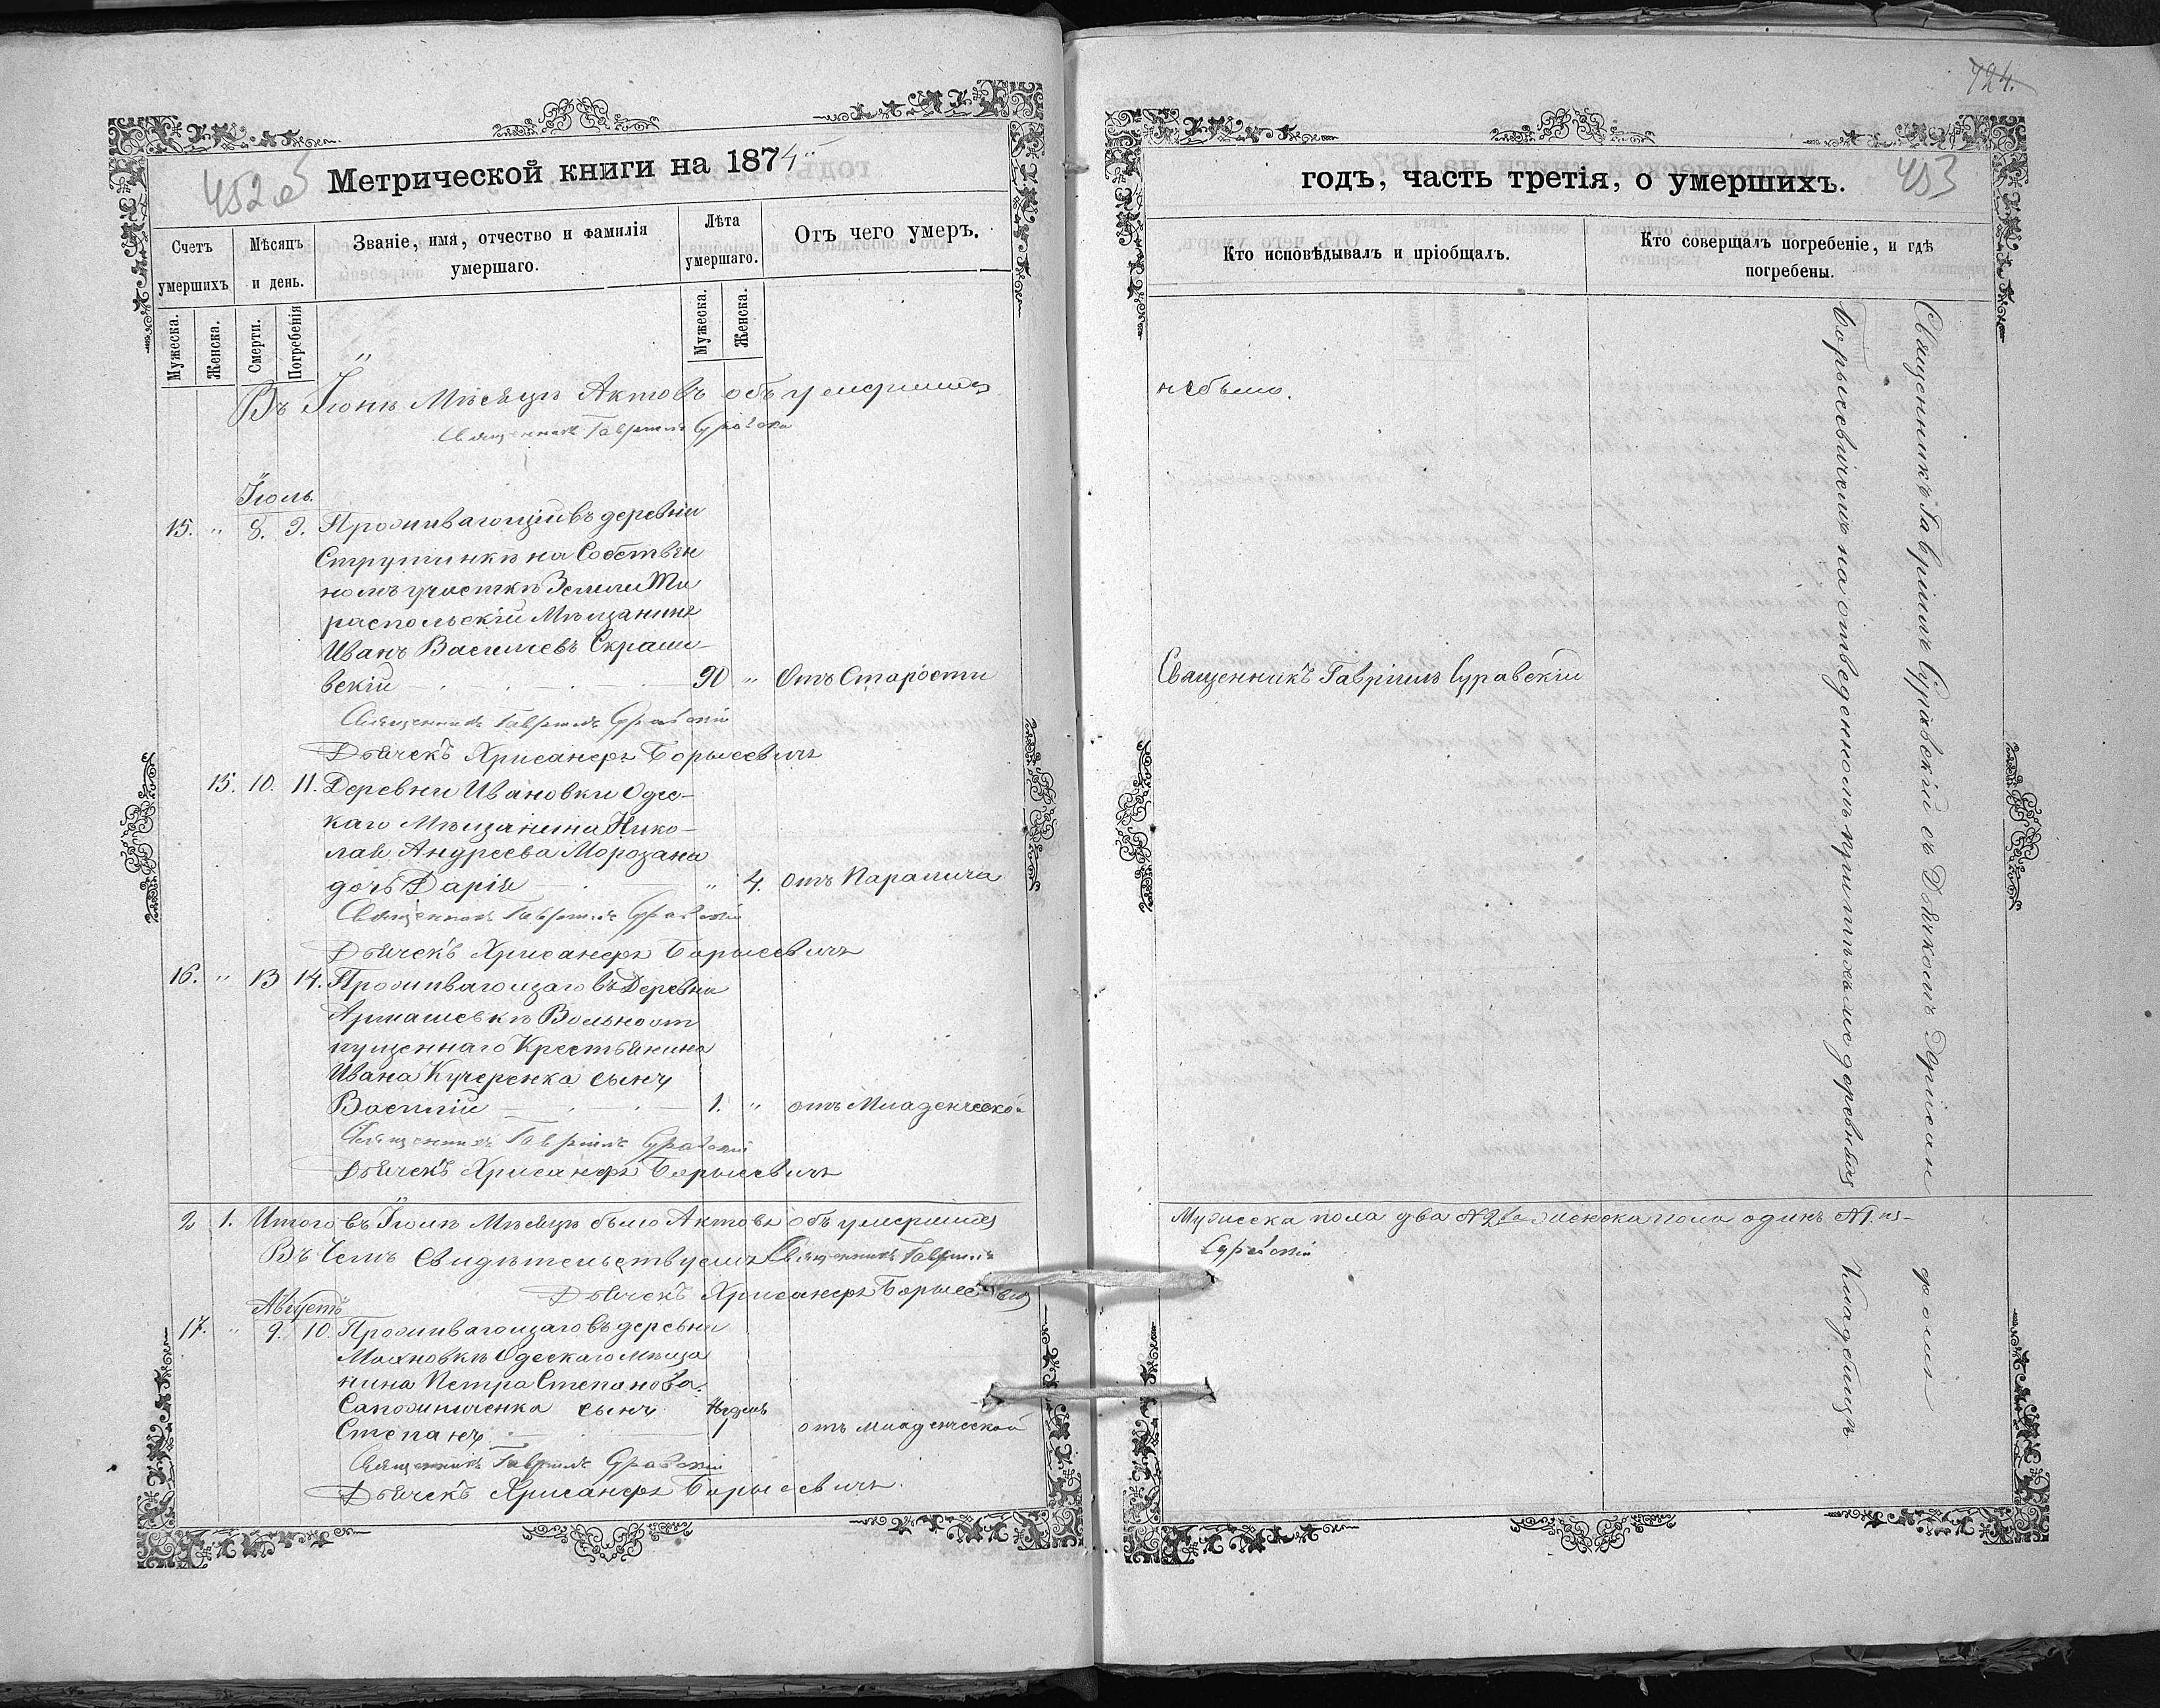 Метрической книги на 1874
452 об
Счетъ умершихъ
Мѣсяцъ и день.
Званіе, имя, отчество и фамилія умершаго.
Лѣта умершаго.
Отъ чего умеръ.
Мужеска.
Женска.
Смерти.
Погребенія
Мужеска.
Женска.
Въ Іюнѣ Мѣсяцѣ Актовъ объ умершихъ
Священникъ Гавріилъ Суравскій
Іюль.
15. " 8. 9. Проживающій въ деревни
Струтинкѣ на Собствен
номъ участкѣ Земли Ти
распольскій Мѣщанинъ
Иванъ Василіевъ Скраши-
вскій 90 " Отъ Старости
Священникъ Гавріилъ Суравскій
Дьячекъ Хрисанфъ Борысевичъ
15. 10. 11. Деревни Ивановки Одес-
каго Мѣщанина Нико-
лая Андреева Морозана
дочь Дарія " 4. отъ Паралича
Священникъ Гавріилъ Суравскій
Дьячекъ Хрисанфъ Борысевичъ
16. " 13 14. Проживающаго въ Деревни
Армашевкѣ Вольноот
пущеннаго Крестьянина
Ивана Кучеренка сынъ
Василій 1. " отъ Младенческой
Священникъ Гавріилъ Суравскій
Дьячекъ Хрисанфъ Борысевичъ
2 1. Итого въ Іюлѣ Мѣсяцѣ было Актовъ объ умершихъ
Въ Чемъ Свидѣтельствуемъ Священникъ Гавріилъ
Дьячекъ Хрисанфъ Борысевичъ
Августъ
17. " 9. 10. Проживающаго въ деревни
Махновкѣ Одескаго Мѣща
нина Петра Степанова
Сапожниченка сынъ Недель
Степанъ 1 отъ младенческой
Священникъ Гавріилъ Суравскій
Дьячекъ Хрисанфъ Борысевичъ.
724.
годъ, часть третія, о умершихъ.
453
Кто исповѣдывалъ и пріобщалъ.
Кто совершалъ погребеніе, и гдѣ погребены.
небыло.
Священникъ Гавріилъ Суравскій
Священникъ Гавріилъ Суравскій съ Дьячкомъ Хрисан
фомъ
Борысевичемъ на отведенномъ при тѣхъ же деревняхъ
Кладбищѣ
Мужеска пола два №2 женска пола одинъ №1.
Суравскій